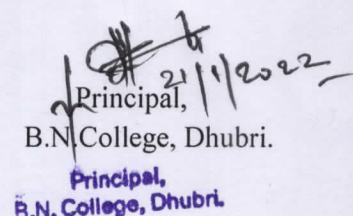 21/1/2022
Principal,
B.N.College, Dhubri.
Principal,
B.N. College, Dhubri.